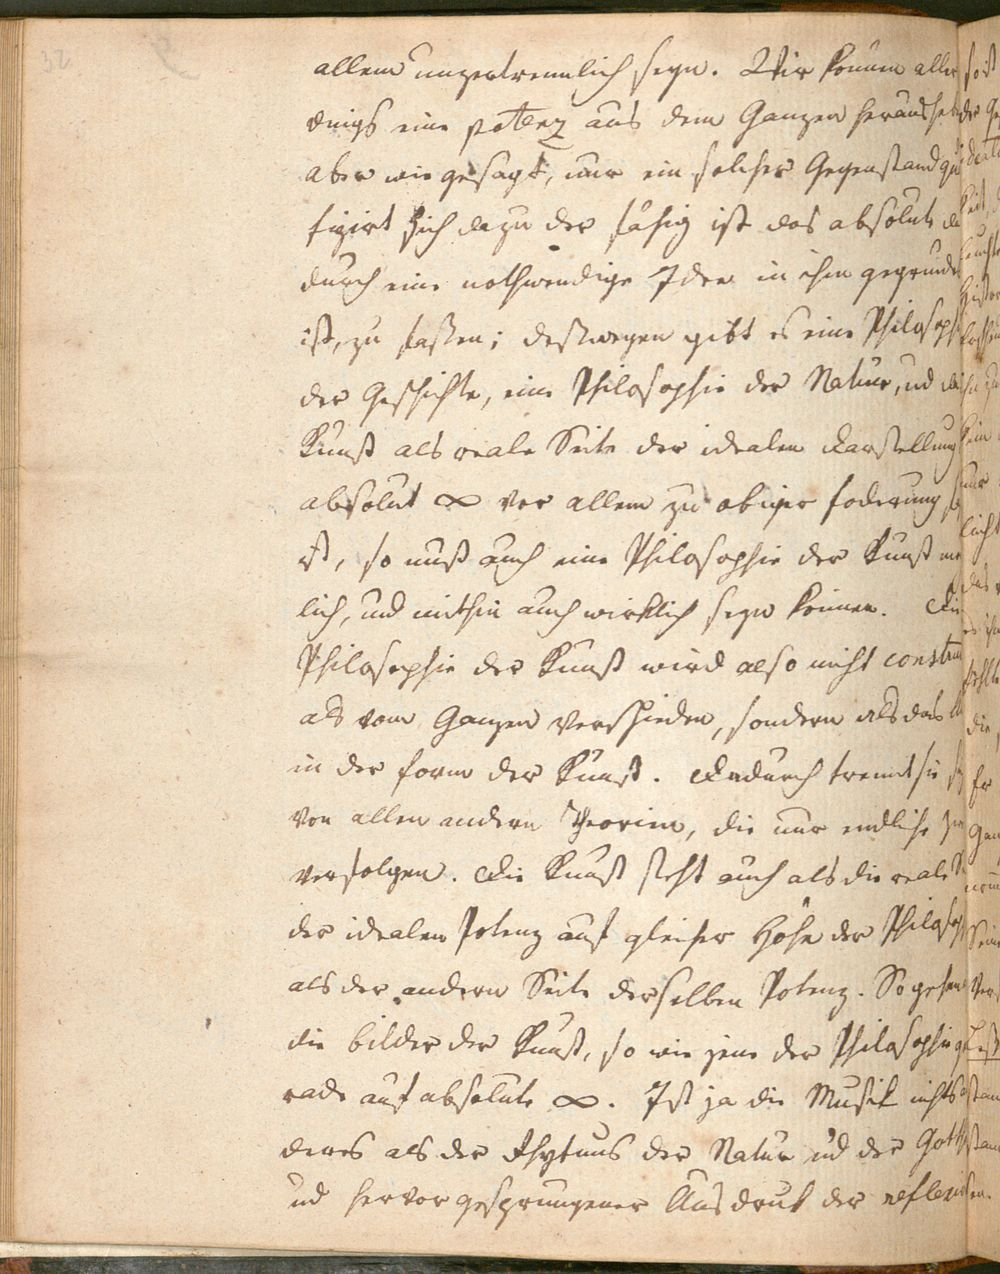 32
allem unzertrennlich seyn. Wir können aller
dings eine potenz aus dem Ganzen heraushe
aber wie gesagt, nur ein solcher Gegenstand qu
fizirt sich dazu der fähig ist das absolute da
durch eine nothwendige Idee in ihm gegründe
ist, zu fassen; deßwegen gibt es eine Philosoph
der Geschichte, eine Philosophie der Natur, ud da
Kunst als reale Seite der idealen Darstellung
absolut ∞ vor allem zu obiger foderung
ist, so muß auch eine Philosophie der Kunst mö
lich, und mithin auch wirklich seyn können. Die
Philosophie der Kunst wird also nicht constru
als vom Ganzen verschieden, sondern als das
in der form der Kunst. Dadurch trennt sie
von allen andern Theorien, die nur endliche
verfolgen. Die Kunst steht auch als die reale
der idealen Potenz auf gleicher Höhe der Philosop
als der andern Seite derselben Potenz. So gehen
die bilder der Kunst, so wie jene der Philosophie ge
rade auf absolute ∞. Ist ja die Musik nichts
deres als der Rhytmus der Natur ud der Gotth
ud hervorgesprungener Ausdruk der reflexio